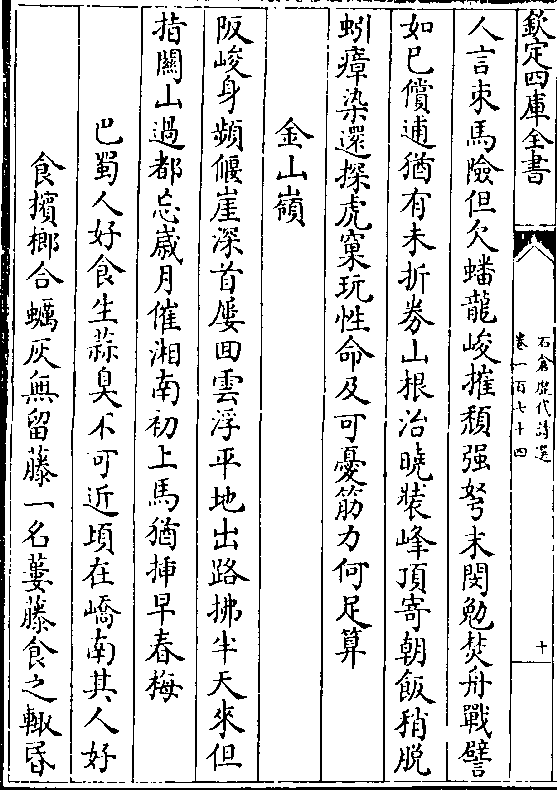 欽定四庫全書
石倉歷代詩選
卷一百七十四
十
人言束馬險但欠蟠龍峻摧頹强弩末閔勉焚舟戰譬
如已償逋猶有未折券山根治曉裝峰頂寄朝飯稍脫
蚓瘴染還探虎窠玩性命及可憂筋力何足算
金山嶺
阪峻身頻偃崖深首屢回雲浮平地出路拂半天來但
指關山過都忘歲月催湘南初上馬猶揷早春梅
巴蜀人好食生蒜臭不可近頃在嶠南其人好
食擯榔合蠣灰無留藤一名蔞藤食之輙昏